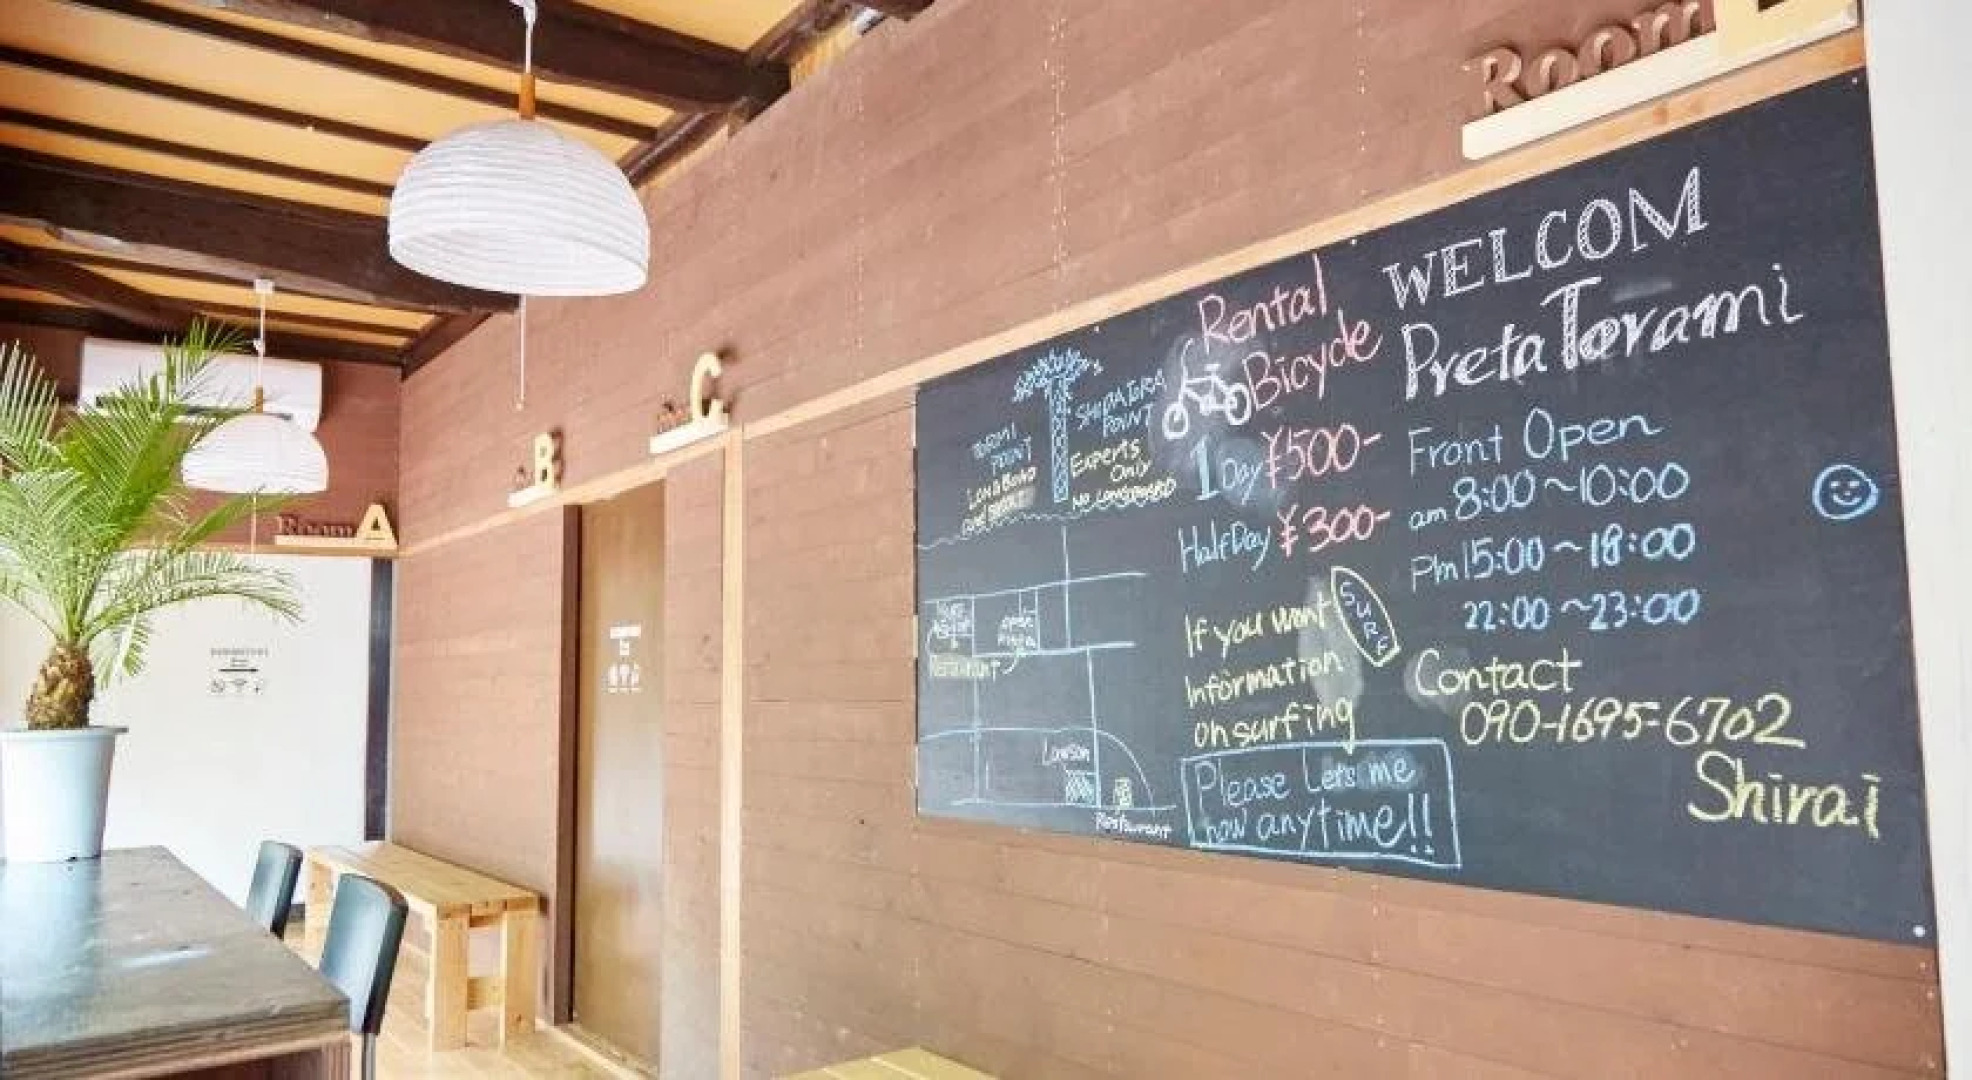 Room
WELCOM
Preta Torami
Front Open
am 8:00~10:00
Pm 15:00~18:00
22:00~23:00
Contact
090-1695-6702
Shirai
Rental
Bicycle
1 Day ¥500-
Half Day ¥300-
If you want
Information
on surfing
SURF
Please Lets me
now anytime!!
TORAMI
POINT
LONGBOAD
SHIDATORA
POINT
Experts
Only
No LONGBOARD
Restaurant
Lawson
Restaurant
C
B
Room A